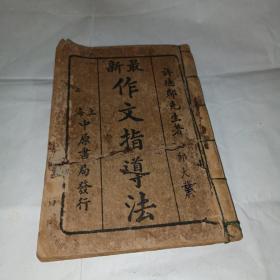 最新
許德鄰先生著
作文指導法
上海中原書局發行